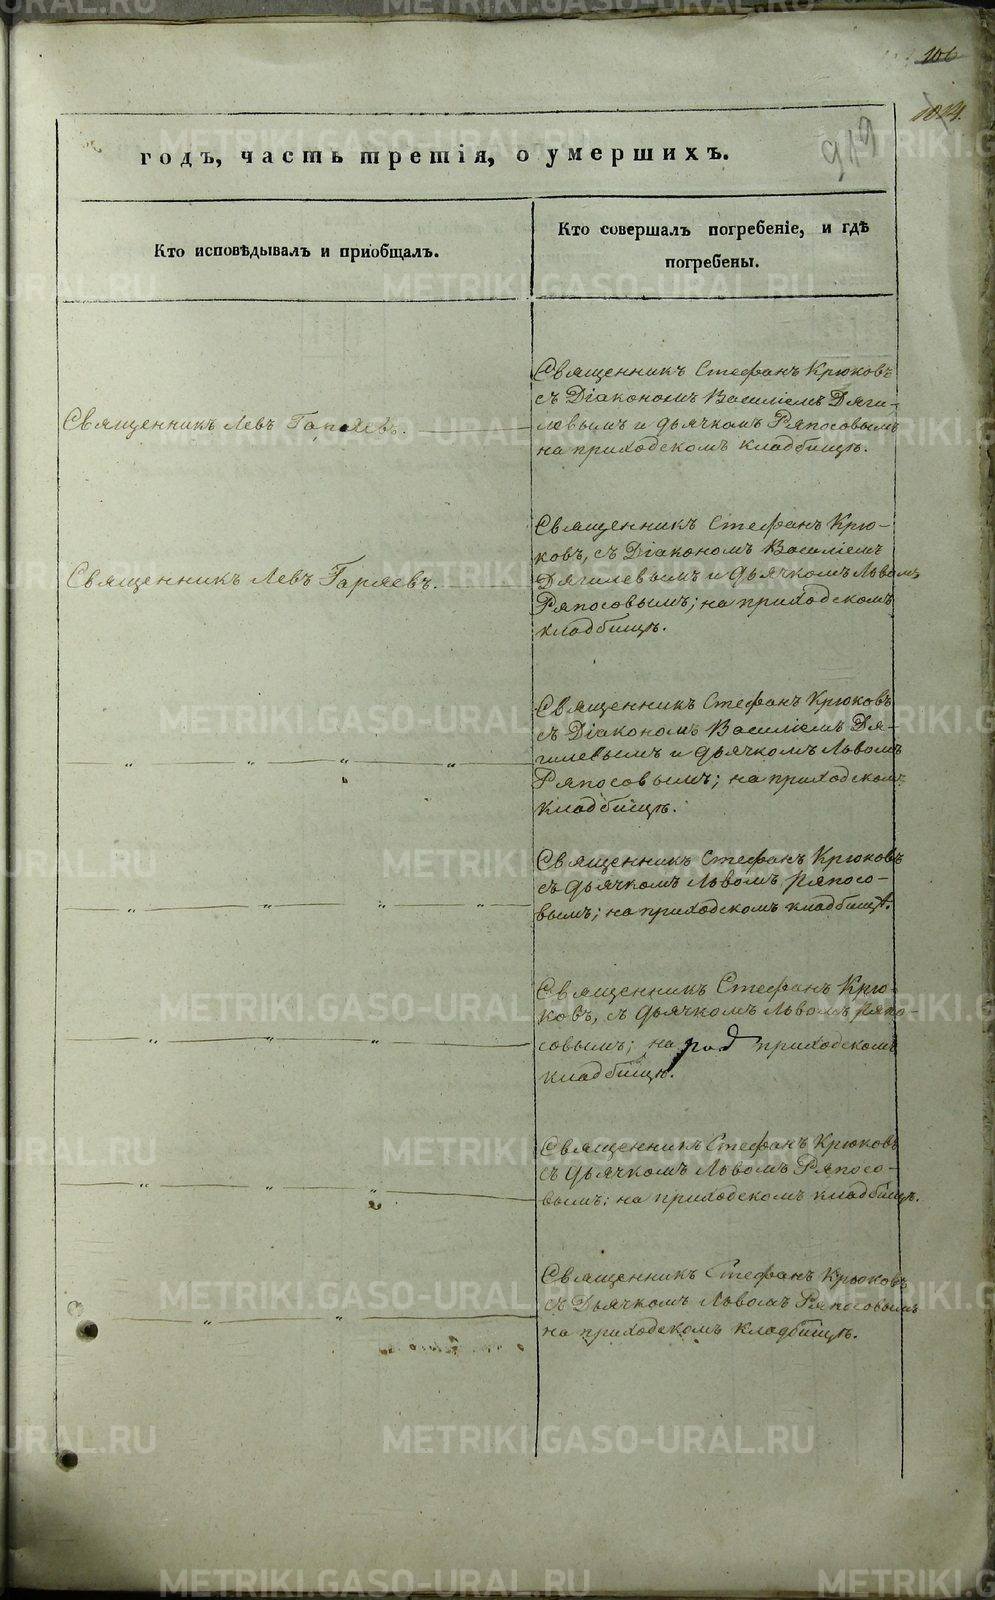 106
1024.
919
годъ, часть третія, о умершихъ.
Кто исповѣдывалъ и приобщалъ.
Кто совершалъ погребеніе, и гдѣ
погребены.
Священникъ Левъ Гаряевъ.
Священникъ Стефанъ Крюковъ
съ Діакономъ Василіемъ Дяги-
левымъ и дьячкомъ Ряпосовымъ
на приходскомъ кладбищѣ.
Священникъ Левъ Гаряевъ.
Священникъ Стефанъ Крю-
ковъ, съ Діакономъ Василіемъ
Дягилевымъ и дьячкомъ Львомъ
Ряпосовымъ; на приходскомъ
кладбищѣ.
„ „ „ „
Священникъ Стефанъ Крюковъ
съ Діакономъ Василіемъ Дя-
гилевымъ и дьячкомъ Львомъ
Ряпосовымъ; на приходскомъ
кладбищѣ.
„ „ „ „
Священникъ Стефанъ Крюковъ
съ дьячкомъ Львомъ Ряпосо-
вымъ; на приходскомъ кладбищѣ.
„ „ „
Священникъ Стефанъ Крю-
ковъ, съ дьячкомъ Львомъ Ряпо-
совымъ; на приходскомъ
кладбищѣ.
„ „ „
Священникъ Стефанъ Крюковъ
съ дьячкомъ Львомъ Ряпосо-
вымъ; на приходскомъ кладбищѣ.
„ „
Священникъ Стефанъ Крюковъ
съ Дьячкомъ Львомъ Ряпосовымъ
на приходскомъ кладбищѣ.
METRIKI.GASO-URAL.RU